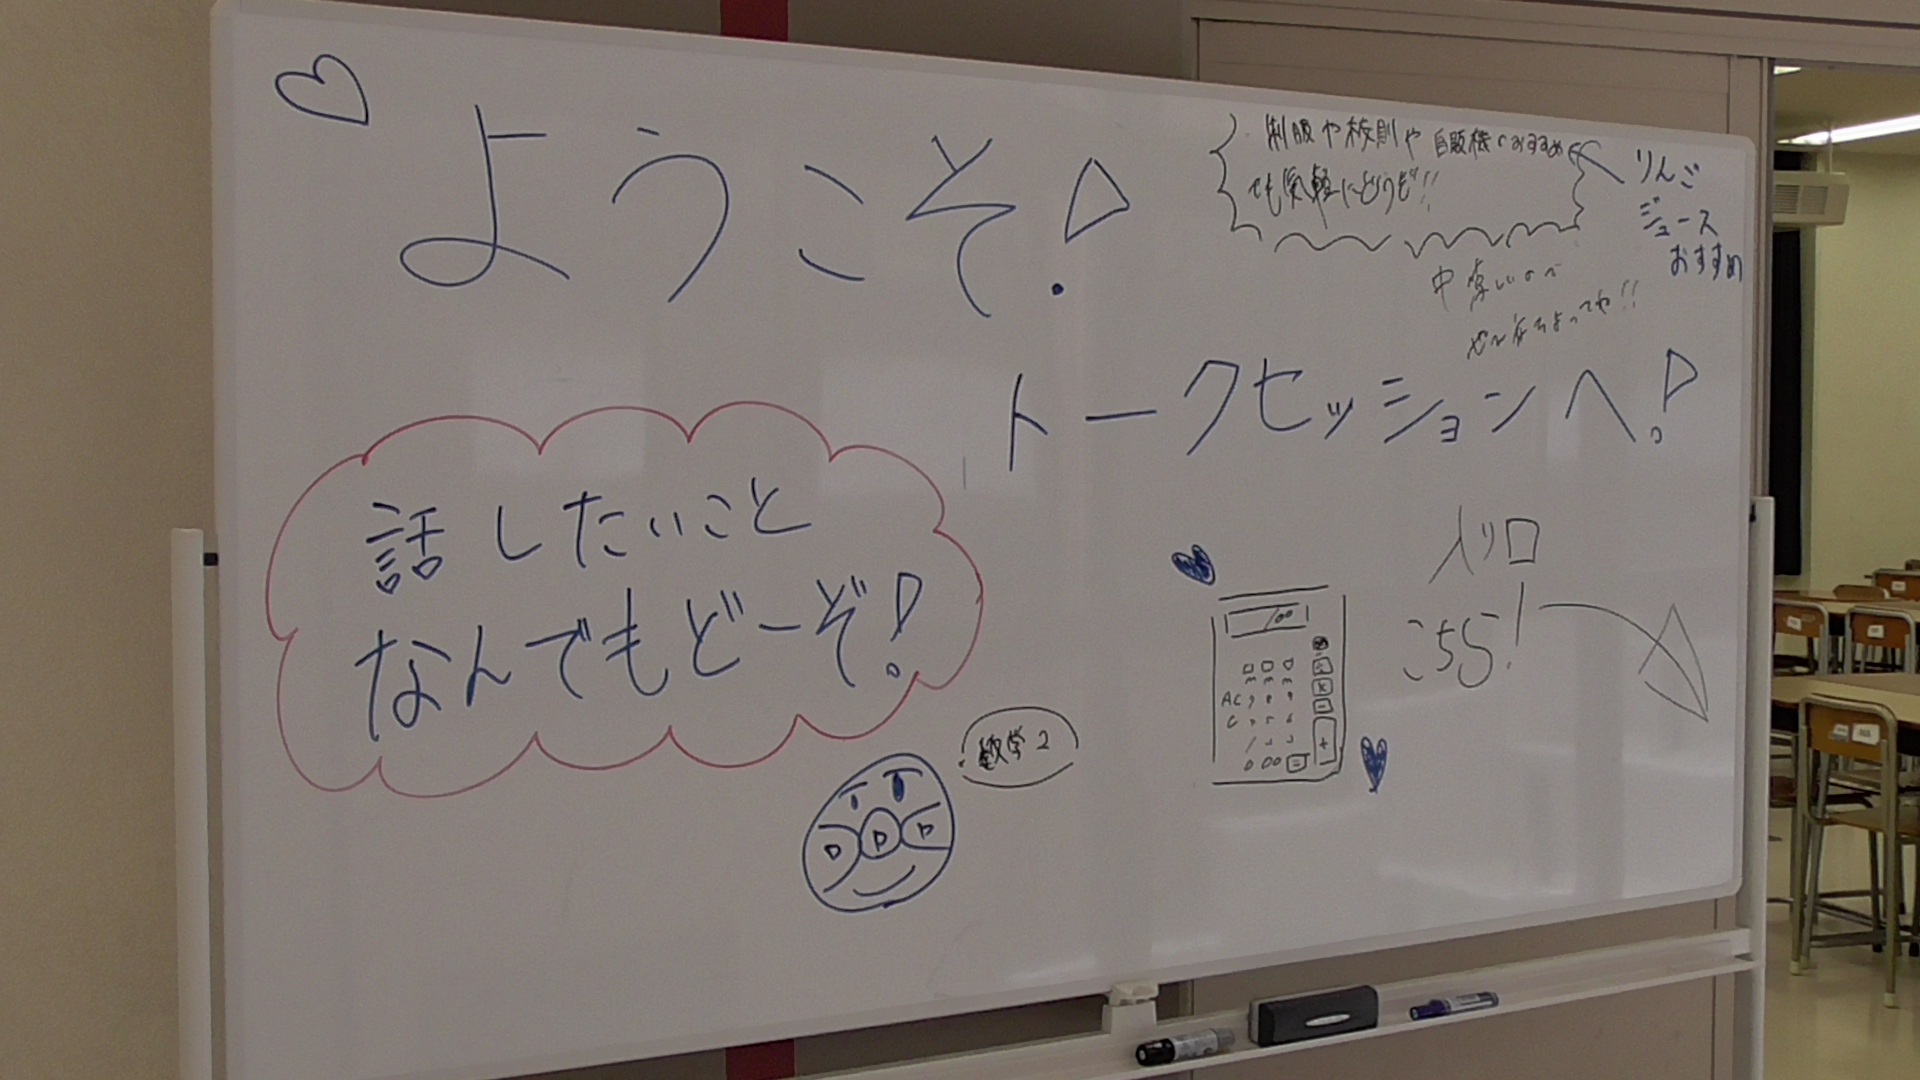 ようこそ!
制服や校則や自販機のおすすめ
でも気軽にどうぞ!!
りんご
ジュース
おすすめ
トークセッションへ!
話したいこと
なんでもどーぞ!
入り口
こちら!
数学2
100
AC
C